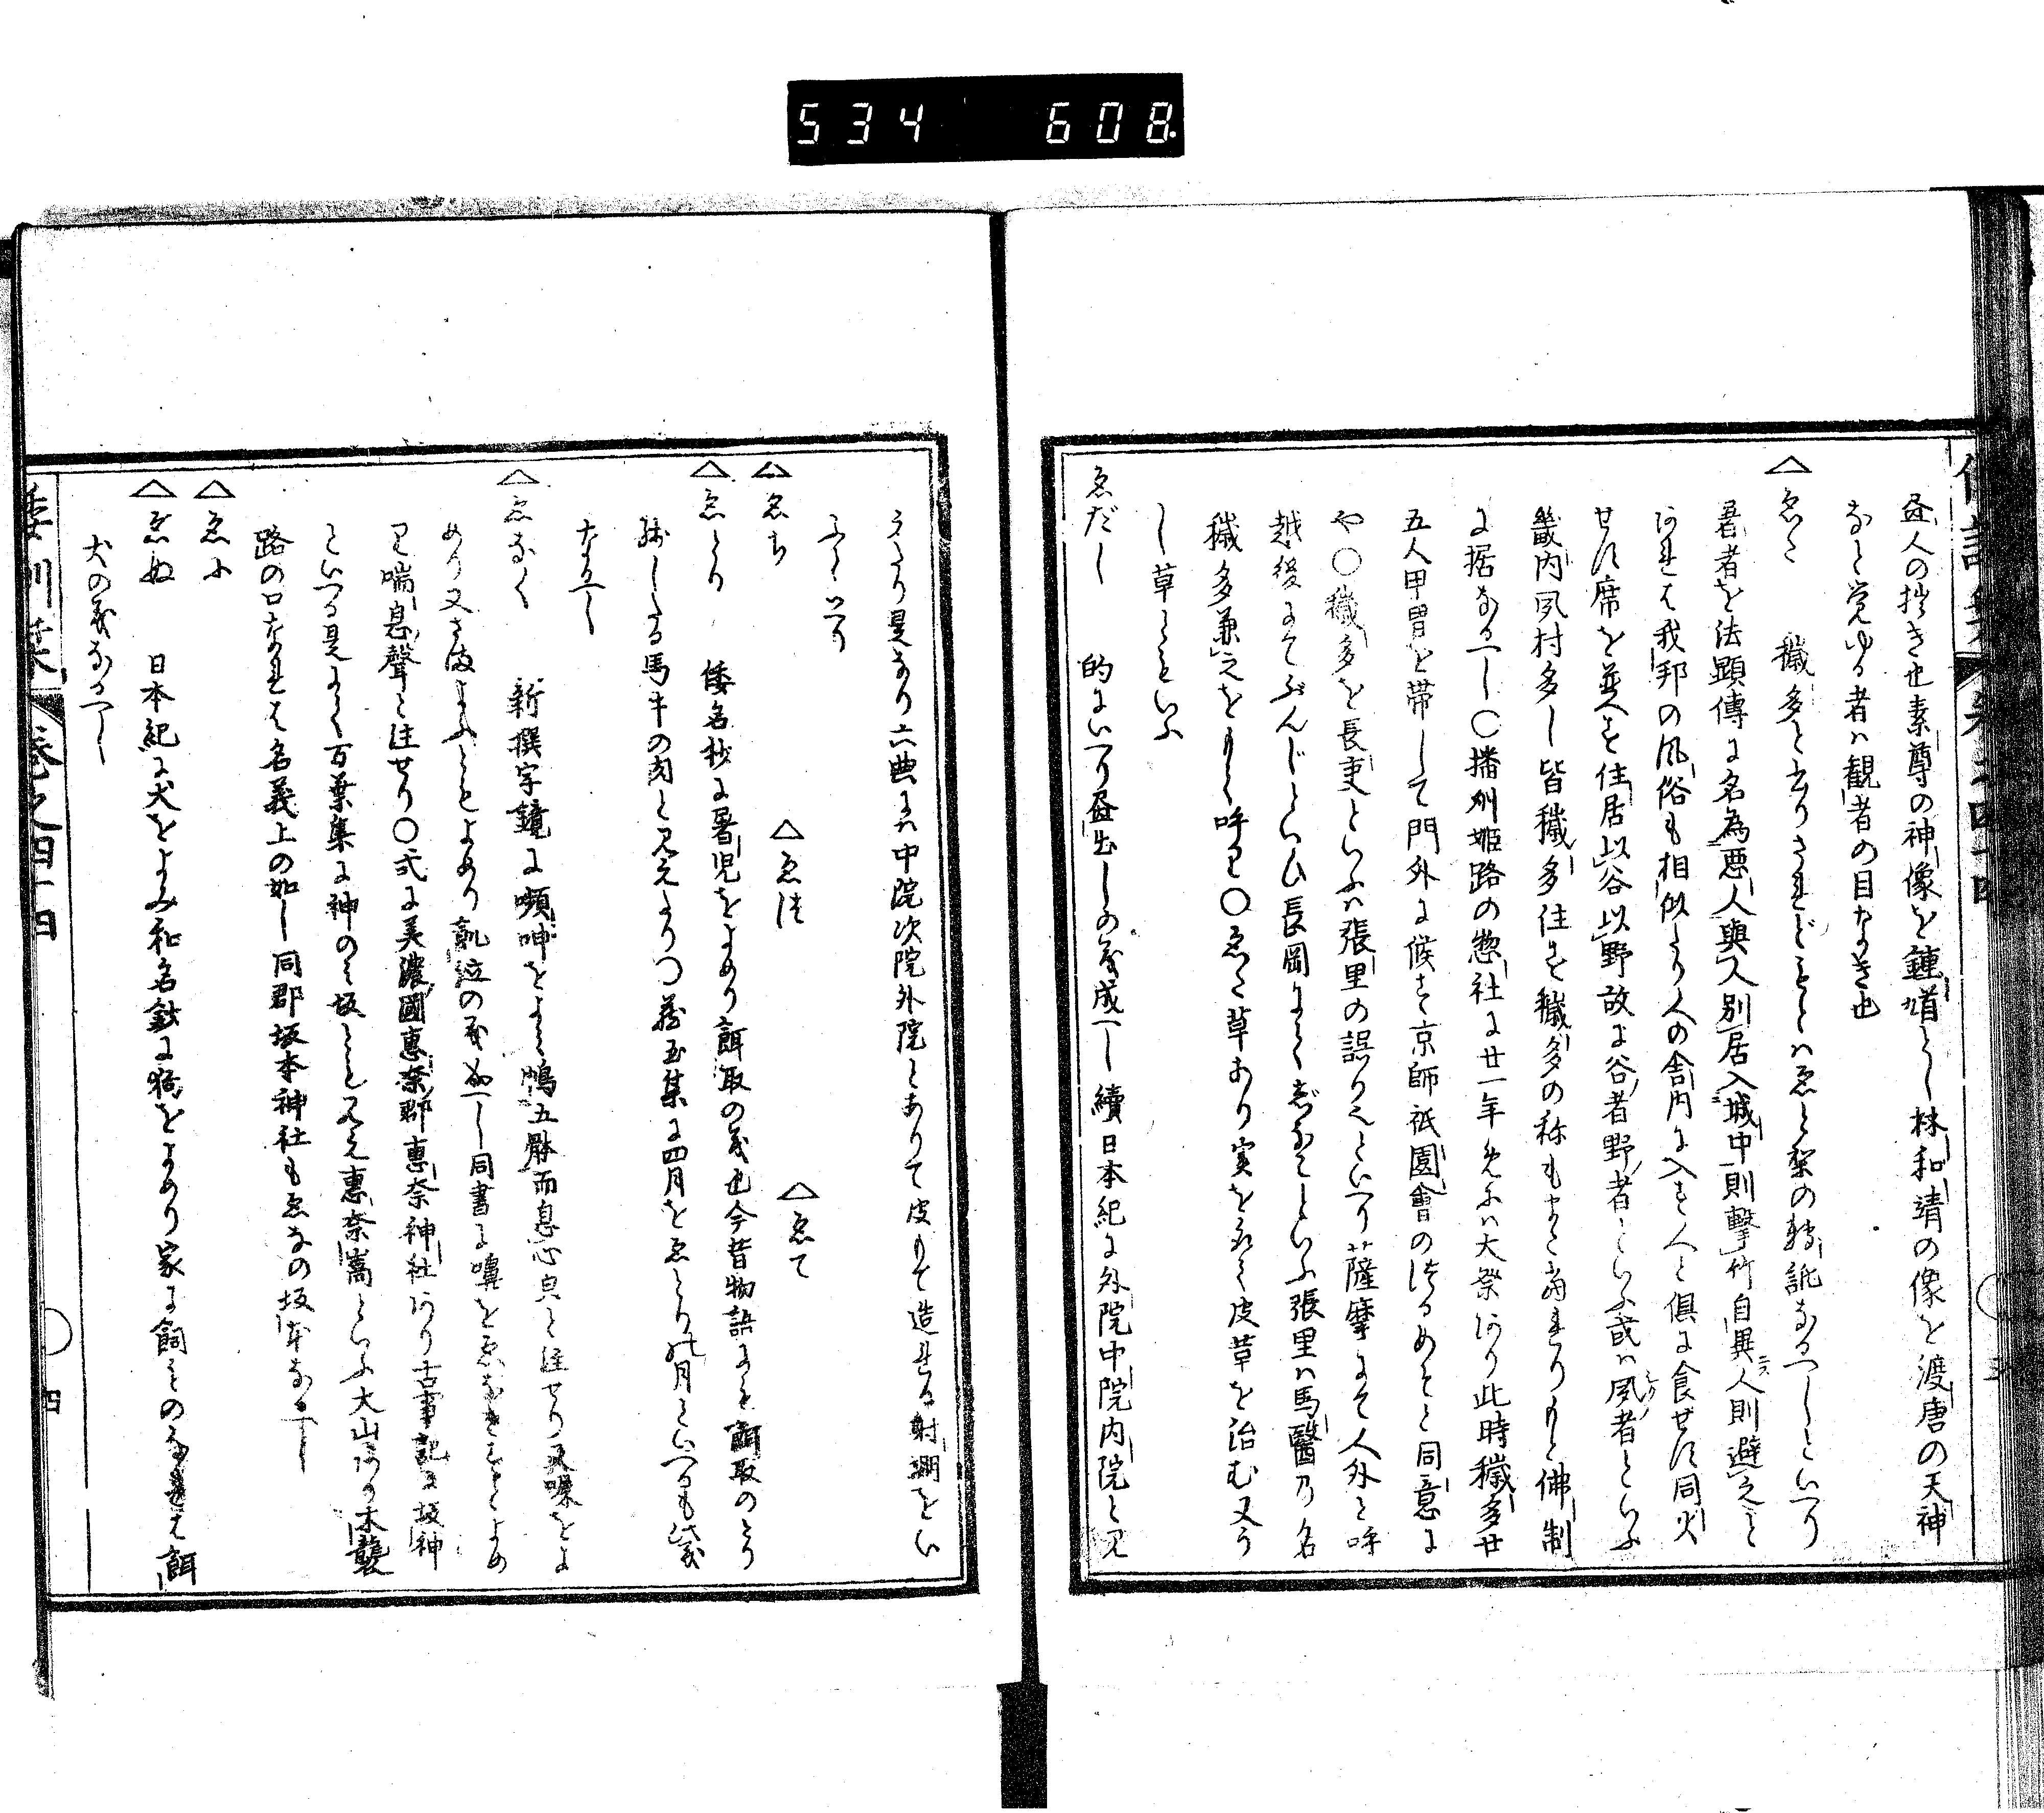 534 608
昼人の拙き也素尊の神像を鍾馗とし林和靖の像を渡唐の天神
なと覚ゆる者ハ観者の目なき也
△ゑた 穢多と書りされどもとハゑと梨の轉訛なるへしといへり
屠者を法顕傳に名為悪人與人別居入城中則撃竹自異人則避之と
あれは我邦の風俗も相似たり人の舎内に入す人と倶に食せす同火
せす席を並へす住居以谷以野故に谷者野者といふ或ハ夙者といふ
畿内夙村多し皆穢多住す穢多の称もまた當れりもと佛制
に据なるへし○播州姫路の惣社に廿一年めにハ大祭あり此時穢多廿
五人甲冑を帯して門外に候す京師祇園會のつるめそと同意に
や○穢多を長吏といふハ張里の誤りといへり薩摩にて人外と呼
越後にてぶんじといひ長岡にてといふ張里ハ馬醫の名
穢多兼之をもて呼り○ゑた草あり実をもて皮草を治む又う
し草ともいふ
ゑだし 的にいへり昼出しの義成へし續日本紀に外院中院内院と見
えたり是なり六典にハ中院次院外院とありて皮もて造れる射堋をい
ふといへり
△ゑち △ゑつ △ゑて
△ゑとり 倭名抄に屠児をよめり餌取の義也今昔物語にも餌取のとり
残したる馬牛の肉と見えたり○蔵玉集に四月をゑとり乃月といへるも此義
なるへし
△ゑなく 新撰字鏡に嚬呻をよみ鳴五臓而息心臭と注せり又噪をよ
めり又さまよふともよめり気泣の義なるへし同書に嚊をゑなきすとよめ
り喘息聲と注せり○式に美濃國恵奈郡恵奈神社あり古事記に坂神
といへる是にて万葉集に神のみ坂とも見え恵奈嵩といふ大山あり木襲
路の口なれは名義上の如し同郡坂本神社もゑなの坂本なるへし
△ゑに
△ゑぬ 日本紀に犬をよみ和名鈔に狗をよめり家に飼ものなれは餌
犬の義なるへし
倭訓栞 巻之四十四 四